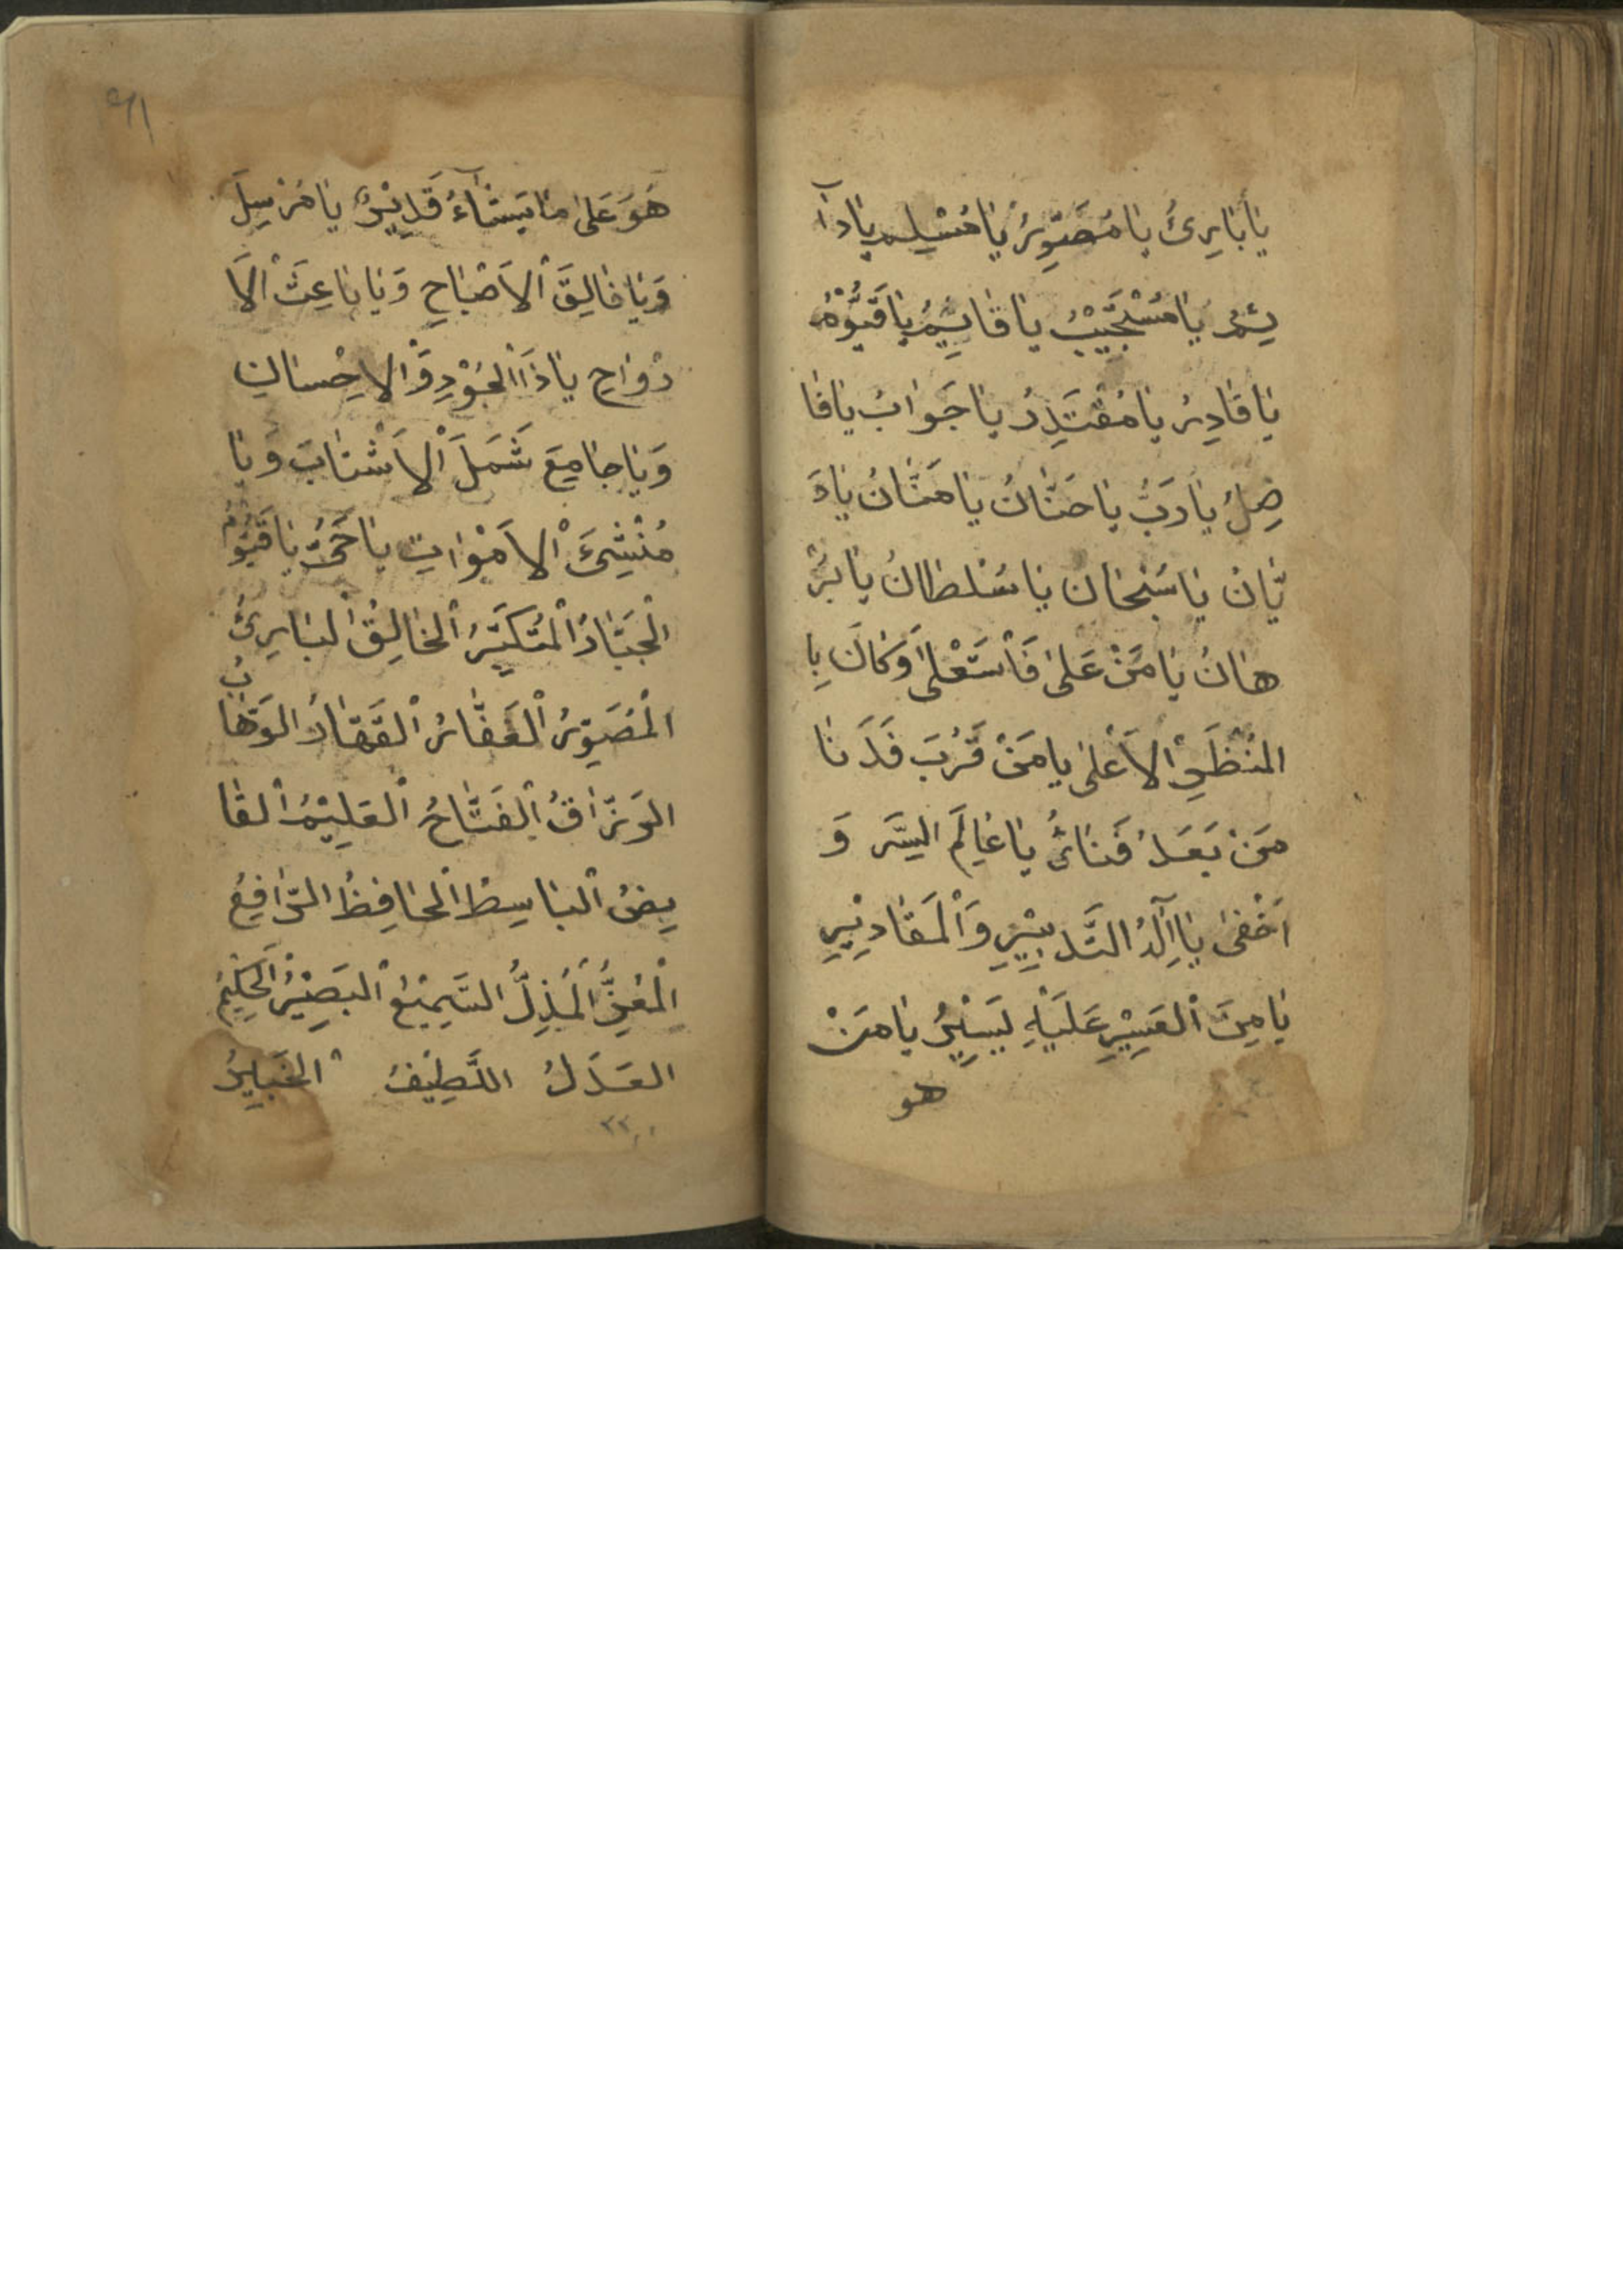 يَا بَارِئُ يَا مُصَوِّرُ يَا مُسْلِم يَا دَآ
ئِمُ يَا مُسْتَجِيْبُ يَا قَايِمُ يَا قَيُّوْمُ
يَا قَادِرُ يَا مُقْتَدِرُ يَا جَوَابُ يَا فَا
ضِلُ يَا رَبُّ يَا حَنَّانُ يَا مَنَّانُ يَا دَ
يَّانُ يَا سُبْحَان يَا سُلطَانُ يَا بُرْ
هَانُ يَا مَنْ عَلىٰ فَاسْتَعْلىٰ وَكَانَ بِا
المَنْظَرِ الاَعْلىٰ يَا مَنْ قَرُبَ فَدَنَا
مَنْ بَعَدُ فَنَائُ يَا عَالِمَ السِّرَ وَ
اَخْفىٰ يَا اِلٓهُ التَّدبِيْرِ وَالْمَقَادِيْرِ
يَا مِنَ الْعَسِيْرِ عَلَيْهِ يَسِيْرُ يَا مَنْ
هو
٩١
هُوَ عَلىٰ مَا يَشَآءُ قَدِيْرُ يَا مُرْسِلَ
وَيَا فَالِقَ الاَصْبَاحِ وَيَا بَاعِثَ الاَ
رْوَاحِ يَا ذَا الْجُوْدِ وَالاِحْسَانِ
وَيَا جَامِعَ شَمَلَ الاَشْتَاتَ وَيَا
مُنْشِئَ الاَمْوَاتِ يَا حَيُّ يَا قَيُّوْمُ
الْجَبَّارُ الْمُتَكَبِّرُ الْخَالِقُ الْبَارِئُ
الْمُصَوِّرُ الْغَفَّارُ الْقَهَّارُ الوَهَّابُ
الرَزَّاقُ الْفَتَّاحُ الْعَلِيْمُ الْقَا
بِضُ الْبَاسِطُ الْحَافِظُ الرَّافِعُ
الْمُعِزُّ الْمُذِلُّ السَّمِيْعُ الْبَصِيْرُ الْحَكِيْمُ
العَدَلُ اللَّطِيْفُ الْخَبِيْرُ